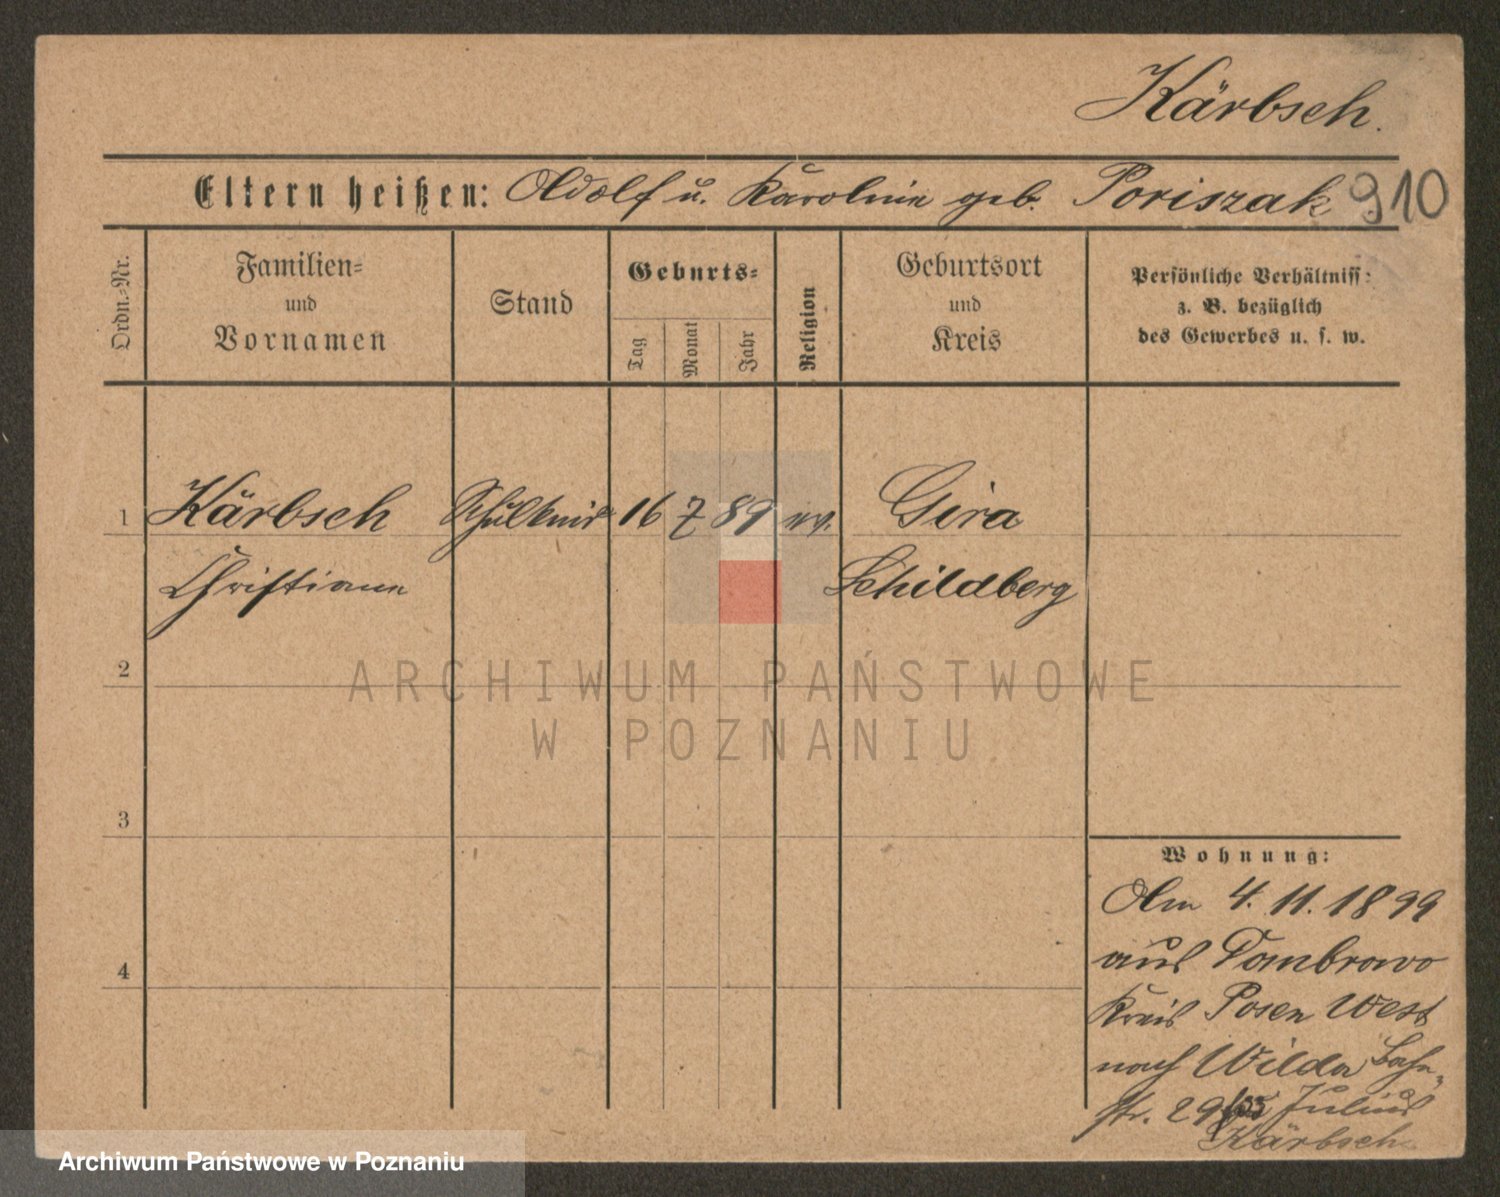 Kärbsch.
Eltern heißen: Adolf u. Karoline geb. Poriszak 910
Ordn.-Nr.
Familien-
und
Vornamen
Stand
Geburts-
Tag
Monat
Jahr
Religion
Geburtsort
und
Kreis
Persönliche Verhältniss
z. B. bezüglich
des Gewerbes u. s. w.
1 Kärbsch Schulkind 16 7 89 ev. Gira
Christiane Schildberg
2
ARCHIWUM PAŃSTWOWE
W POZNANIU
3
4
Wohnung:
Am 4.11.1899
aus Dombrowo
Kreis Posen West
nach Wilda Bahn-
str. 29 Julius
Kärbsch
Archiwum Państwowe w Poznaniu